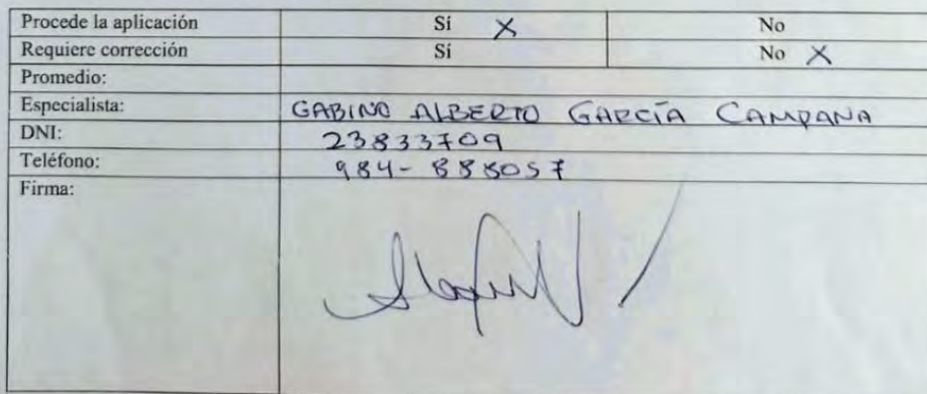 Procede la aplicación Sí X No
Requiere corrección Sí No X
Promedio:
Especialista: GABINO ALBERTO GARCÍA CAMPANA
DNI: 23833709
Teléfono: 984-888057
Firma: